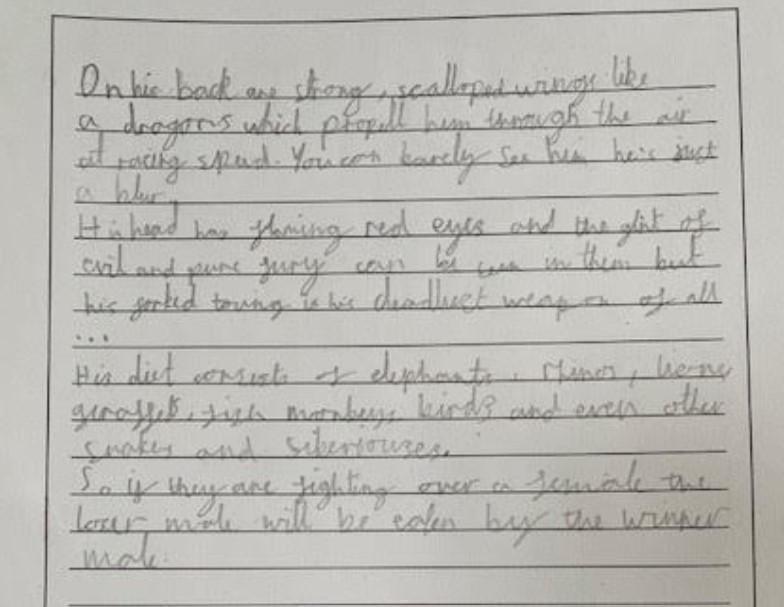 On his back are strong, scalloped wings like
a dragons which propell him through the air
at racing speed. You can barely see him he's just
a blur.
His head has flaming red eyes and the glint of
evil and pure fury can be seen in them but
his forked toung is his deadliest weapon of all
...
His diet consists of elephants, rhinos, lions,
giraffes, fish monkeys, birds and even other
snakes and
So if they are fighting over a female the
loser male will be eaten by the winner
male.